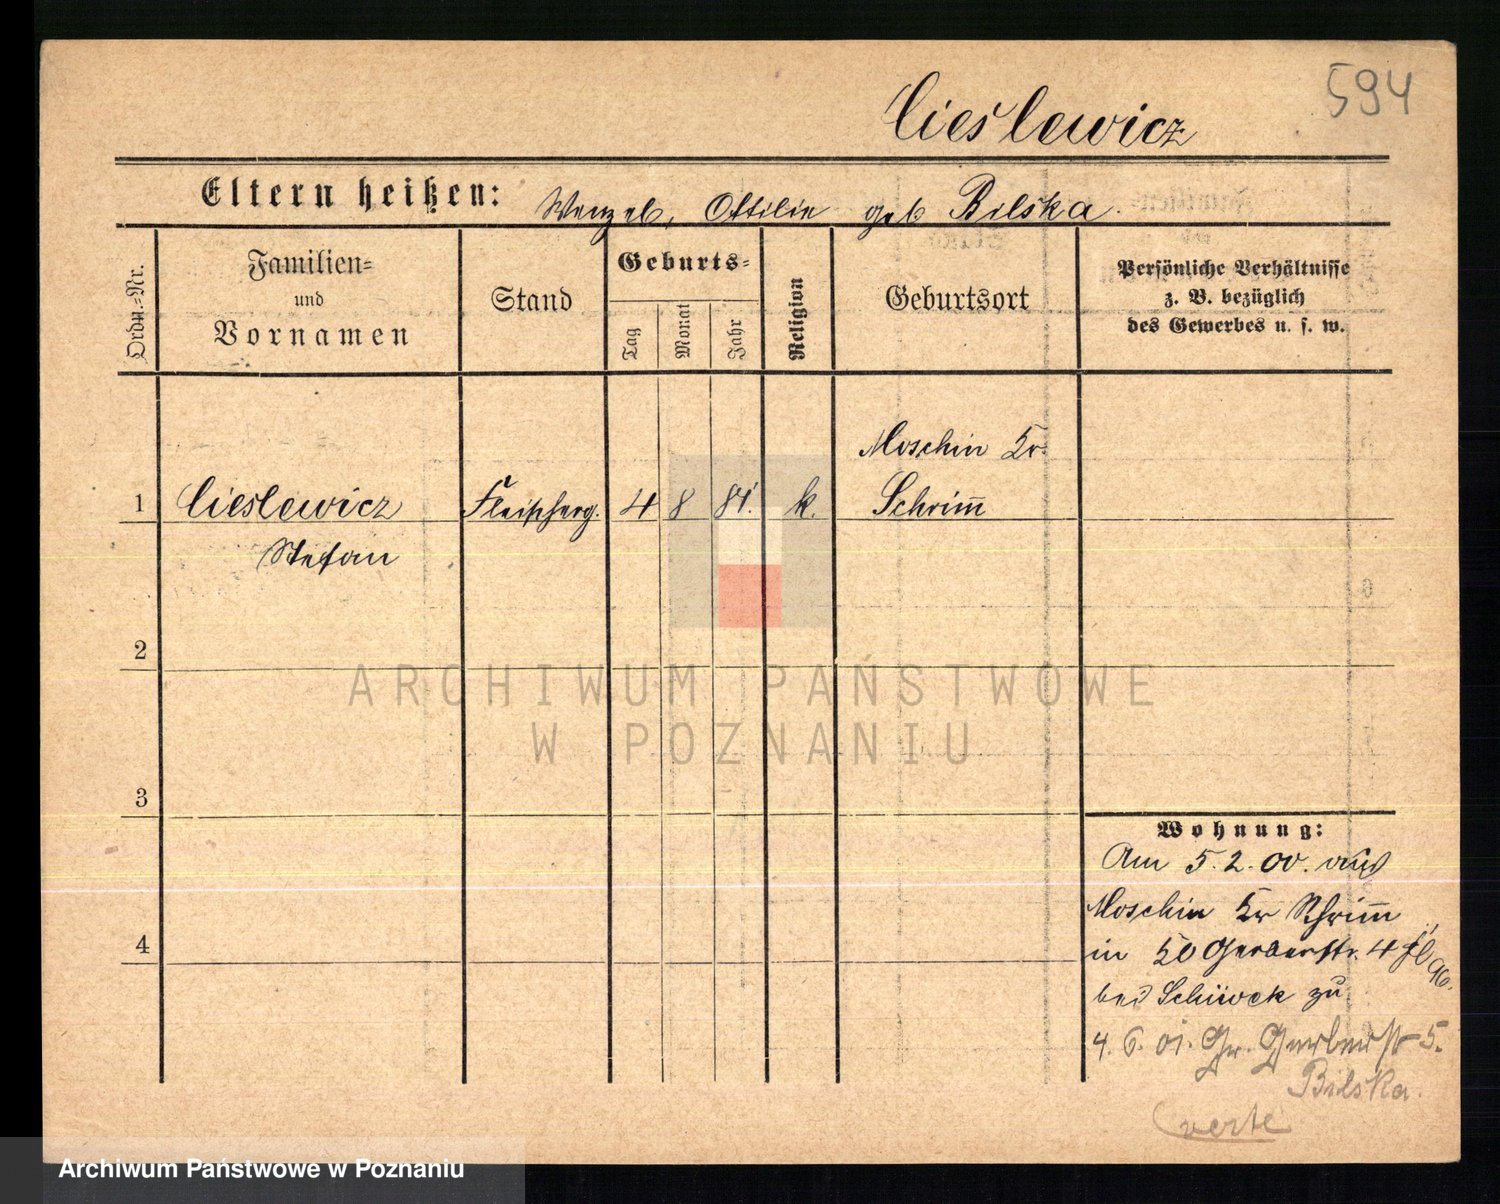 594
Cieslewicz
Eltern heißen: Wenzel, Ottilie geb Bilska.
Ordn.=Nr.
Familien=
und
Vornamen
Stand
Geburts=
Tag
Monat
Jahr
Religion
Geburtsort
Persönliche Verhältnisse
z. B. bezüglich
des Gewerbes u. s. w.
Moschin Kr.
1 Cieslewicz Fleischerg. 4 8 81. k. Schrim̅
Stefan
2
ARCHIWUM PAŃSTWOWE
W POZNANIU
3
Wohnung:
Am 5.2.00. aus
Moschin Kr Schrim̅
in Kl Gerberstr. 4
bei zu
4.6.01. Gr. Gerberstr 5.
Bilska.
verte
4
Archiwum Państwowe w Poznaniu